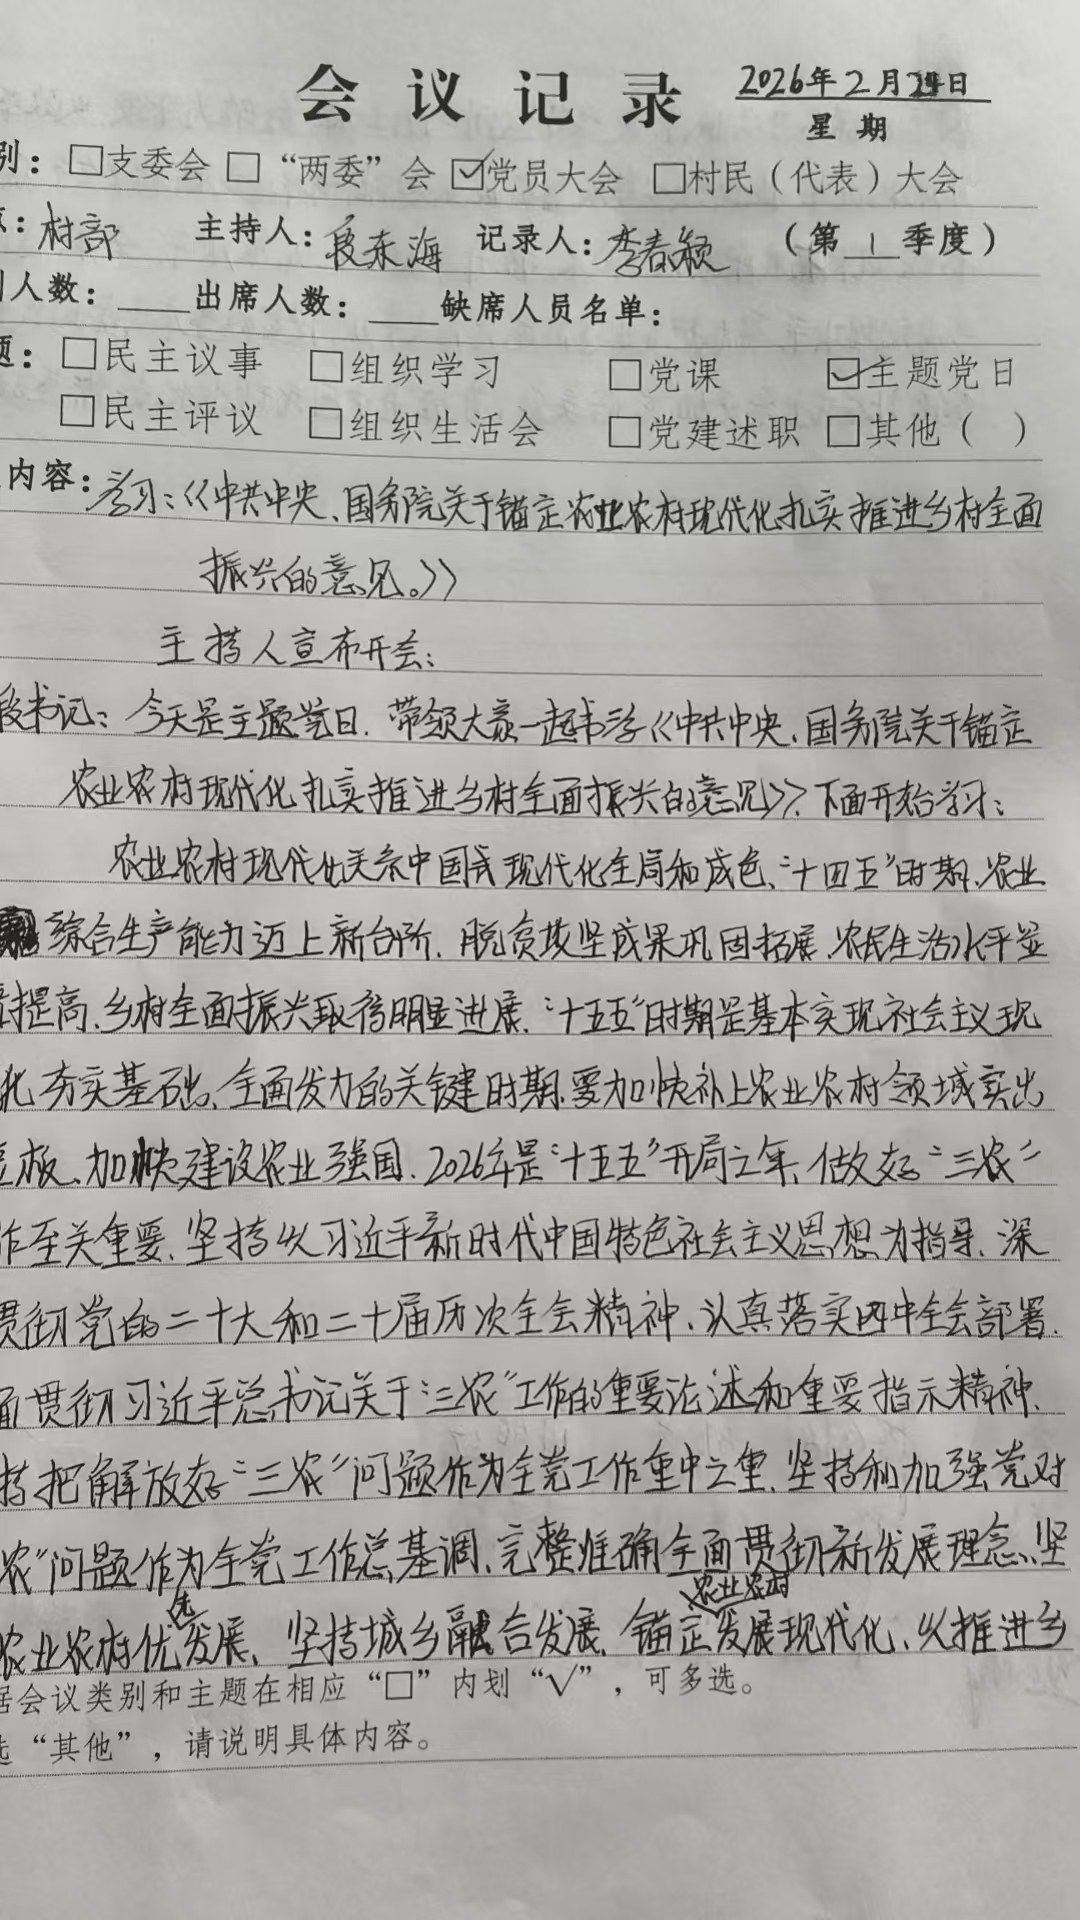 会议记录 2026年2月24日
星期
别：□支委会 □“两委”会 ☑党员大会 □村民（代表）大会
点：村部 主持人：段东海 记录人：李春颖 （第1季度）
人数：____出席人数：____缺席人员名单：
题：□民主议事 □组织学习 □党课 ☑主题党日
□民主评议 □组织生活会 □党建述职 □其他（ ）
内容：学习：《中共中央、国务院关于锚定农业农村现代化扎实推进乡村全面
振兴的意见。》
主持人宣布开会：
段书记：今天是主题党日.带领大家一起书学《中共中央、国务院关于锚定
农业农村现代化扎实推进乡村全面振兴的意见》.下面开始学习：
农业农村现代化关系中国式现代化全局和成色、“十四五”时期、农业
综合生产能力迈上新台阶、脱贫攻坚成果巩固拓展、农民生活水平显
著提高、乡村全面振兴取得明显进展.“十五五”时期是基本实现社会主义现
化夯实基础、全面发力的关键时期.要加快补上农业农村领域突出
短板、加快建设农业强国.2026年是“十五五”开局之年、做好“三农”
作至关重要.坚持以习近平新时代中国特色社会主义思想为指导、深
贯彻党的二十大和二十届历次全会精神、认真落实四中全会部署.
面贯彻习近平总书记关于“三农”工作的重要论述和重要指示精神、
持把解放好“三农”问题作为全党工作重中之重.坚持和加强党对
农”问题作为全党工作总基调、完整准确全面贯彻新发展理念、坚
农业农村优先发展、坚持城乡融合发展、锚定农业农村发展现代化、以推进乡
据会议类别和主题在相应“□”内划“√”，可多选。
选“其他”，请说明具体内容。